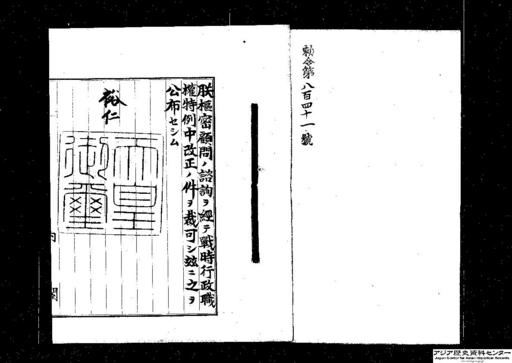 勅令第八百四十一號
朕樞密顧問ノ諮詢ヲ經テ戰時行政職
權特例中改正ノ件ヲ裁可シ玆ニ之ヲ
公布セシム
裕仁
天皇
御璽
内
閣
アジア歴史資料センター
Japan Center for Asian Historical Records